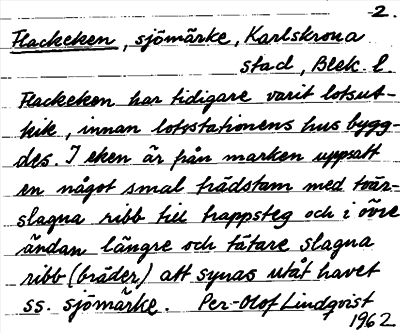 2.
Flackeken, sjömärke, Karlskrona
stad, Blek. l.
Flackeken har tidigare varit lotsut-
kik, innan lotsstationens hus bygg-
des. I eken är från marken uppsatt
en något smal trädstam med tvär-
slagna ribb till trappsteg och i övre
ändan längre och tätare slagna
ribb (bräder) att synas utåt havet
ss. sjömärke. Per-Olof Lindqvist
1962.